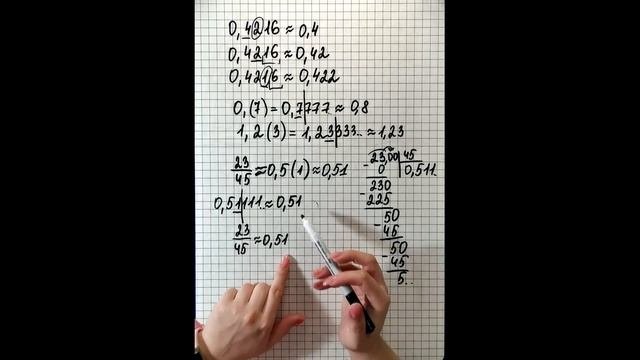 0,4216 ≈ 0,4
0,4216 ≈ 0,42
0,4216 ≈ 0,422
0,(7) = 0,7777... ≈ 0,8
1,2(3) = 1,23333... ≈ 1,23
23/45 ≈ 0,5(1) ≈ 0,51
0,51111.. ≈ 0,51
23/45 ≈ 0,51
23,00 | 45
0 | 0,511..
230
- 225
50
- 45
50
- 45
5..